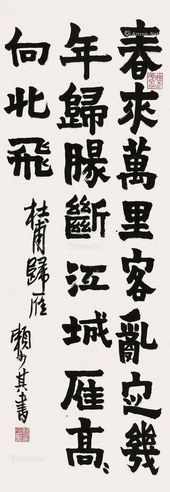 春來萬里客亂定幾
年歸腸斷江城雁高々
向北飛
杜甫歸雁
賴少其書